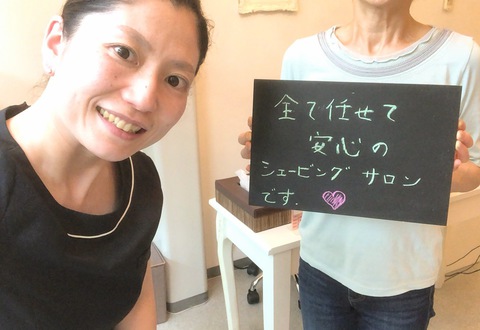 全て任せて
安心の
シェービング サロン
です.